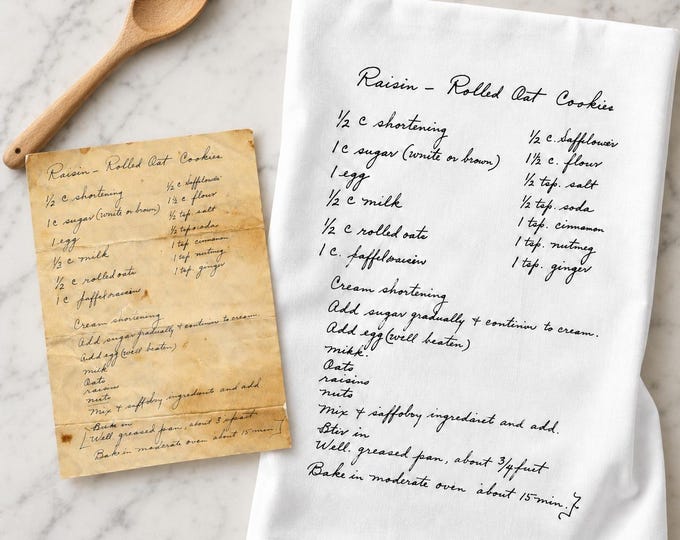 Raisin – Rolled Oat Cookies
½ c shortening
1 c sugar (white or brown)
1 egg
⅓ c milk
½ c rolled oats
1 c
½ c. Safflower
1½ c. flour
½ tsp. salt
½ tsp soda
1 tsp. cinnamon
1 tsp. nutmeg
1 tsp. ginger
Cream shortening
Add sugar gradually & continue to cream.
Add egg (well beaten)
milk
Oats
raisins
nuts
Mix & ingredient and add
Bake in
[Well greased pan, about
Bake in moderate oven about 15 min.]
Raisin – Rolled Oat Cookies
½ c shortening
1 c sugar (wnite or brown)
1 egg
½ c milk
½ c rolled oats
1 c.
½ c. Safflower
1½ c. flour
½ tsp. salt
½ tsp. soda
1 tsp. cinnamon
1 tsp. nutmeg
1 tsp. ginger
Cream shortening
Add sugar gradually & to cream.
Add egg (well beaten)
milk
Oats
raisins
nuts
Mix & and add.
in
Well. greased pan, about 3/4
Bake in moderate oven about 15 min.}